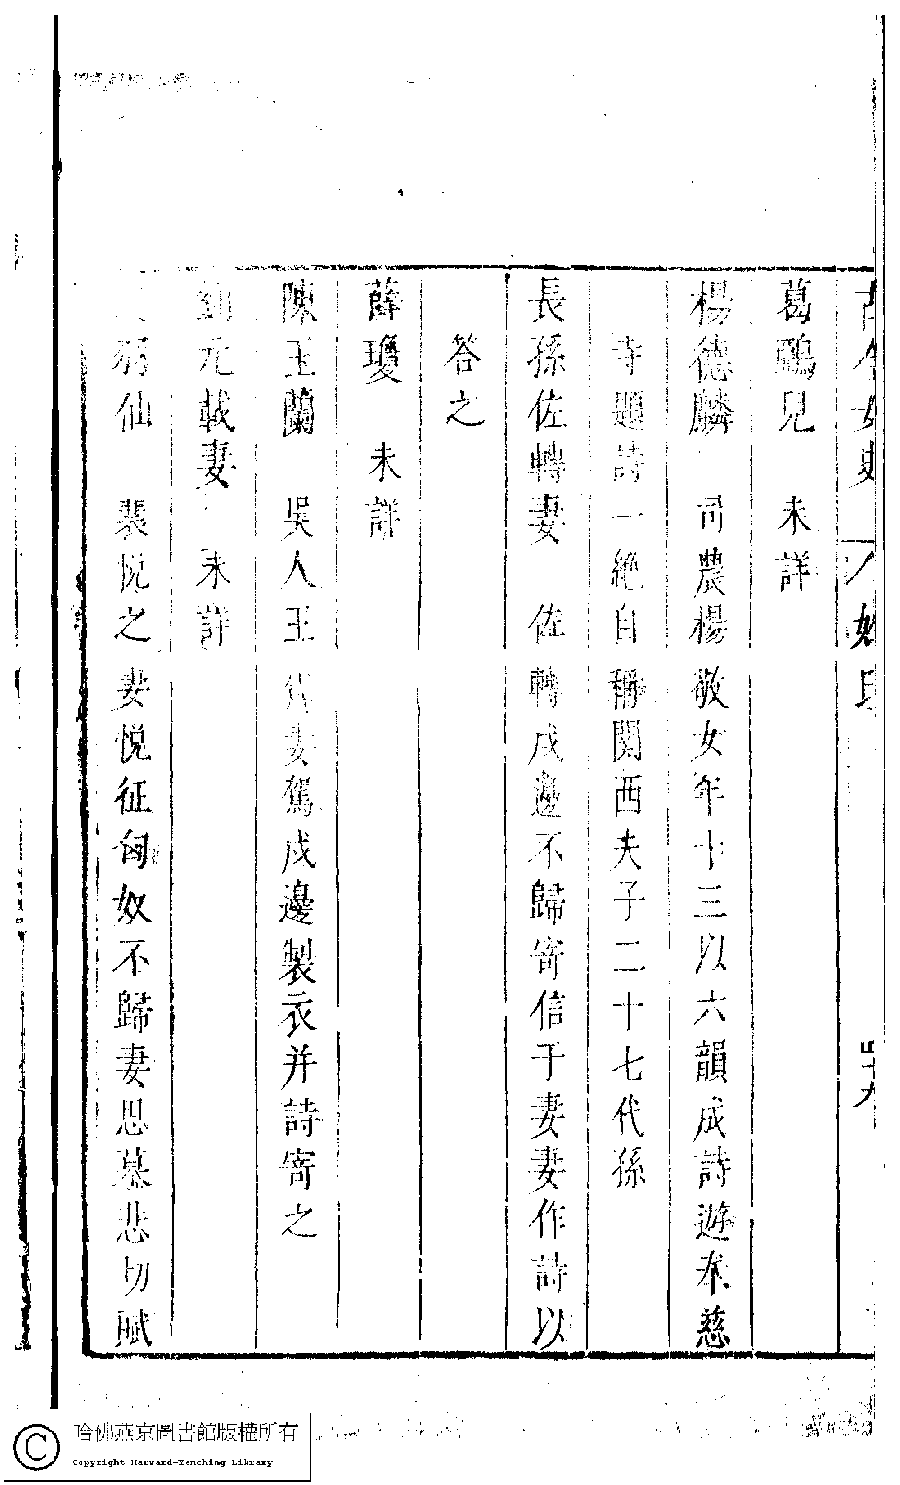 古今女史 姓氏
葛鵶兒 未詳
楊德麟 司農楊敬女年十三以六韻成詩遊奉慈
寺題詩一絕自稱関西夫子二十七代孫
長孫佐轉妻 佐轉戍邊不歸寄信于妻妻作詩以
答之
薛瓊 未詳
陳玉蘭 吳人王駕妻駕戍邊製衣并詩寄之
劉元載妻 未詳
羽仙 裴悅之妻悅征匈奴不歸妻思慕悲切賦
哈佛燕京圖書館版權所有
Copyright Harvard-Yenching Library